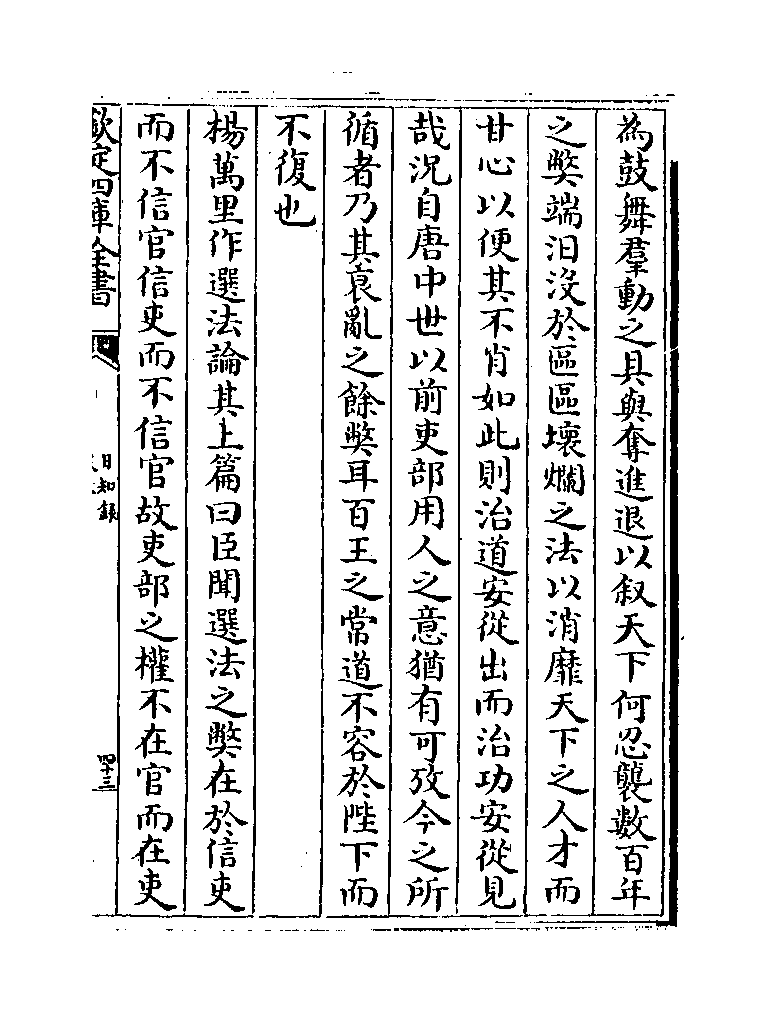 為鼓舞羣動之具與奪進退以叙天下何忍襲數百年
之弊端汨没於區區壞爛之法以消靡天下之人才而
甘心以便其不肖如此則治道安從出而治功安從見
哉况自唐中世以前吏部用人之意猶有可攷今之所
循者乃其衰亂之餘弊耳百王之常道不容於陛下而
不復也
楊萬里作選法論其上篇曰臣聞選法之弊在於信吏
而不信官信吏而不信官故吏部之權不在官而在吏
欽定四庫全書
日知録
四十三